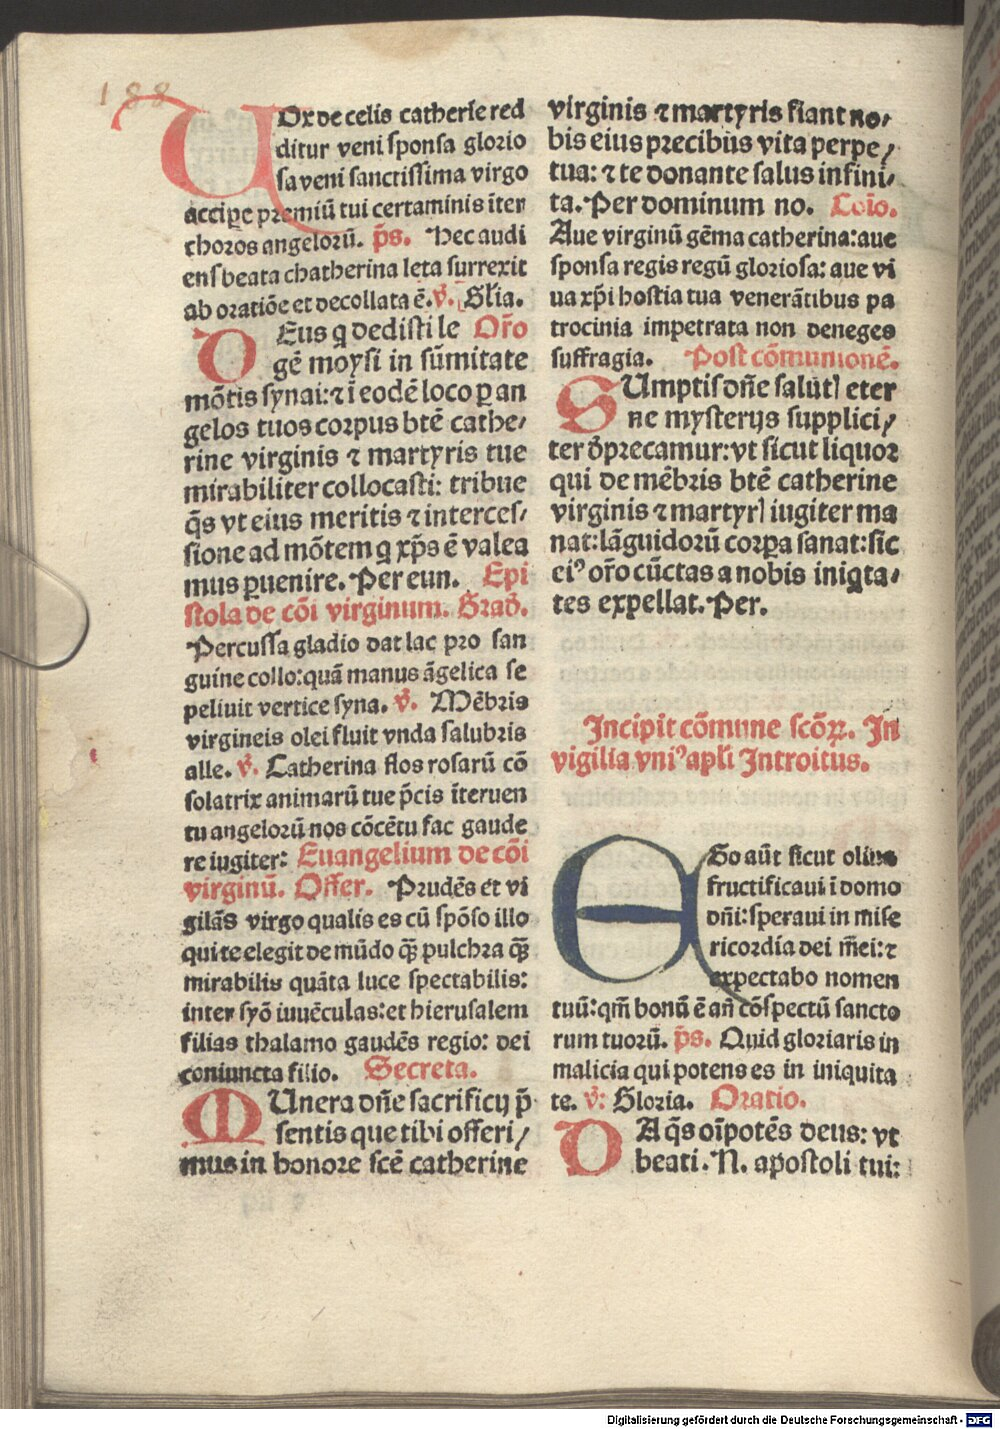 188
UOx de celis catherie red
ditur veni sponsa glorio
sa veni sanctissima virgo
accipe premiũ tui certaminis ĩter
choros angelorũ. p̃s. Hec audi
ens beata chatherina leta surrexit
ab oratiõe et decollata ẽ. ṽ. Gl̃ia.
DEus q dedisti le Or̃o
gẽ moysi in sũmitate
mõtis synai: ⁊ ĩ eodẽ loco ꝑ an
gelos tuos corpus btẽ cathe⸗
rine virginis ⁊ martyris tue
mirabiliter collocasti: tribue
q̃s vt eius meritis ⁊ interces⸗
sione ad mõtem q xp̃s ẽ valea
mus ꝑuenire. Per eun. Epi
stola de cõi virginum. Grad̃.
Percussa gladio dat lac pro san
guine collo: quã manus ãgelica se
peliuit vertice syna. ṽ. Mẽbris
virgineis olei fluit vnda salubris
alle. ṽ. Catherina flos rosarũ cõ
solatrix animarũ tue p̃cis ĩteruen
tu angelorũ nos cõcẽtu fac gaude
re iugiter: Euangelium de cõi
virginũ. Offer. Prudẽs et vi
gilãs virgo qualis es cũ spõso illo
qui te elegit de mũdo q̃ꝫ pulchra q̃ꝫ
mirabilis quãta luce spectabilis:
inter syõ iuuẽculas: et hierusalem
filias thalamo gaudẽs regio: dei
coniuncta filio. Secreta.
MUnera dñe sacrificij p̃
sentis que tibi offeri/
mus in honore scẽ catherine
virginis ⁊ martyris fiant no⸗
bis eius precibus vita perpe/
tua: ⁊ te donante salus infini⸗
ta. Per dominum no. Cõio.
Aue virginũ gẽma catherina: aue
sponsa regis regũ gloriosa: aue vi
ua xp̃i hostia tua venerãtibus pa
trocinia impetrata non deneges
suffragia. Post cõmunionẽ.
SUmptis dñe salutꝭ eter
ne mysterijs supplici/
ter dp̃recamur: vt sicut liquor
qui de mẽbris btẽ catherine
virginis ⁊ martyrꝭ iugiter ma
nat: lãguidorũ corꝑa sanat: sic
eiꝰ or̃o cũctas a nobis iniqta⸗
tes expellat. Per.
Incipit cõmune scõꝝ. In
vigilia vniꝰ apl̃i Introitus.
EGo aũt sicut oliua
fructificaui ĩ domo
dñi: speraui in mise
ricordia dei mei: ⁊
expectabo nomen
tuũ: qm̃ bonũ ẽ añ cõspectũ sancto
rum tuorũ. p̃s. Quid gloriaris in
malicia qui potens es in iniquita
te. ṽ: Gloria. Oratio.
DA q̃s oĩpotẽs deus: vt
beati. N. apostoli tui:
Digitalisierung gefördert durch die Deutsche Forschungsgemeinschaft - DFG